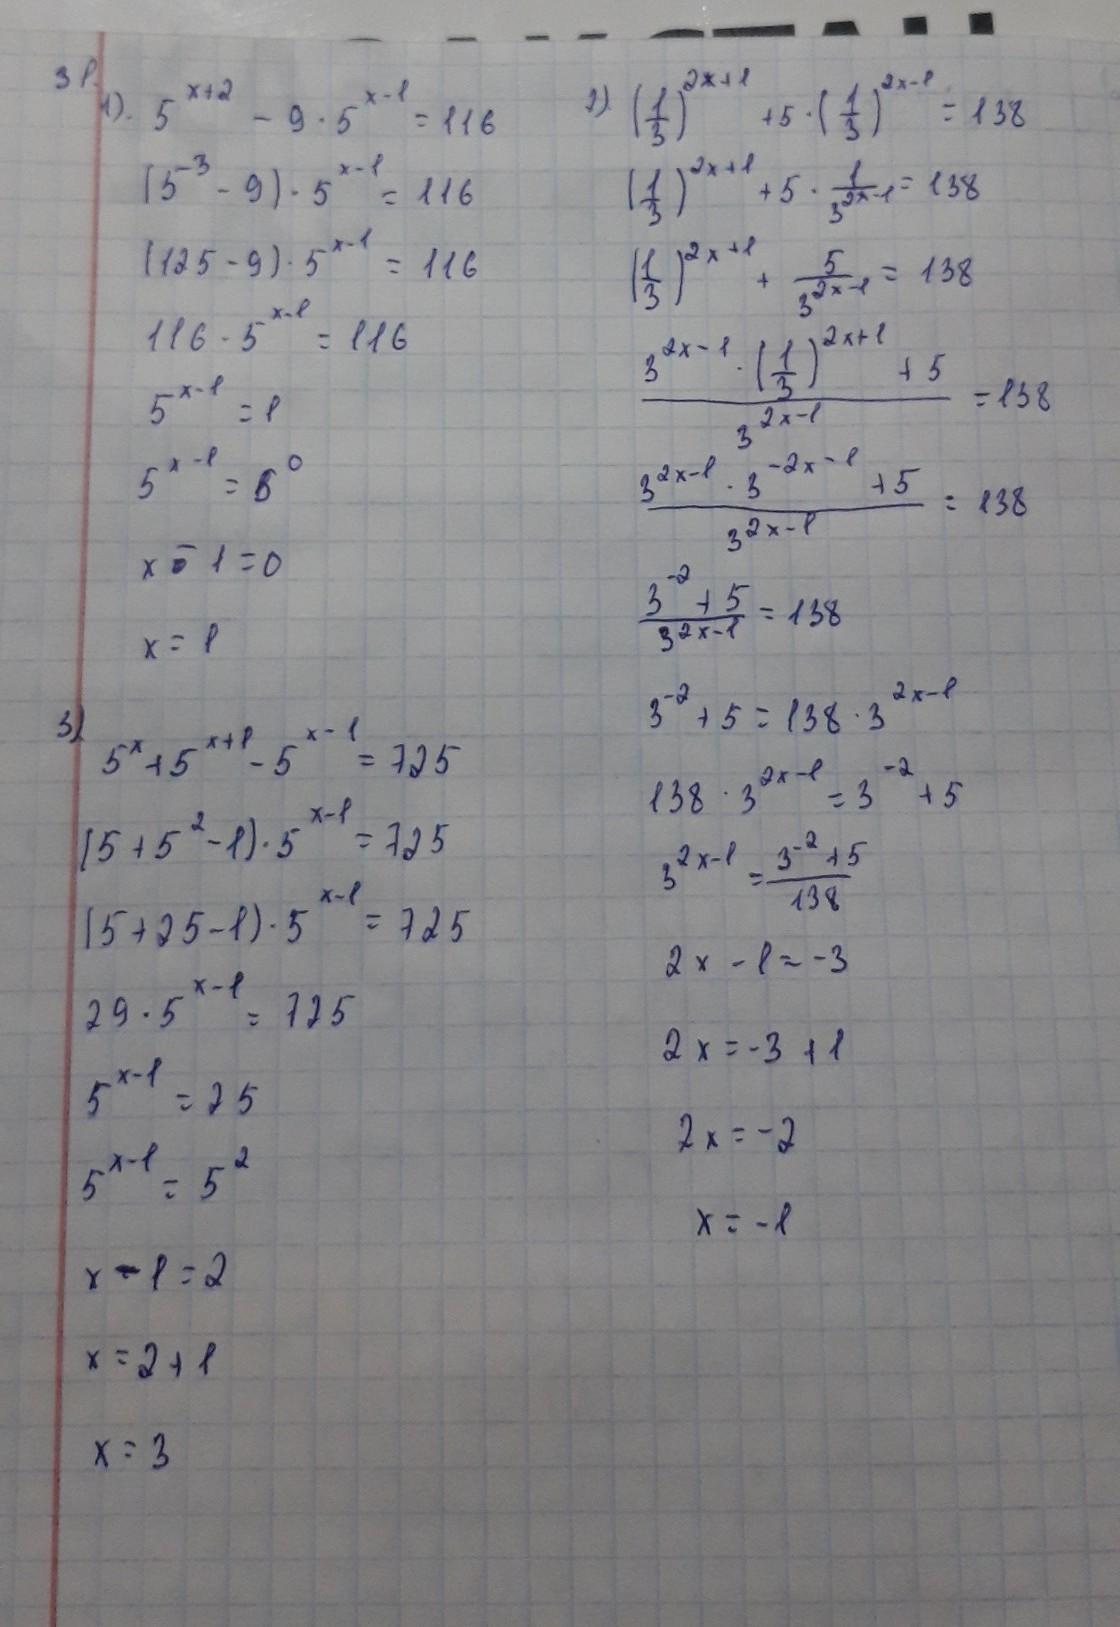 31.
1). 5^{x+2} - 9 · 5^{x-1} = 116
(5^{-3} - 9) · 5^{x-1} = 116
(125 - 9) · 5^{x-1} = 116
116 · 5^{x-1} = 116
5^{x-1} = 1
5^{x-1} = 5^0
x - 1 = 0
x = 1
2) (1/3)^{2x+1} + 5 · (1/3)^{2x-1} = 138
(1/3)^{2x+1} + 5 · 1/3^{2x-1} = 138
(1/3)^{2x+1} + 5/3^{2x-1} = 138
(3^{2x-1} · (1/3)^{2x+1} + 5)/3^{2x-1} = 138
(3^{2x-1} · 3^{-2x-1} + 5)/3^{2x-1} = 138
(3^{-2} + 5)/3^{2x-1} = 138
3^{-2} + 5 = 138 · 3^{2x-1}
138 · 3^{2x-1} = 3^{-2} + 5
3^{2x-1} = (3^{-2} + 5)/138
2x - 1 = -3
2x = -3 + 1
2x = -2
x = -1
3)
5^x + 5^{x+1} - 5^{x-1} = 725
(5 + 5^2 - 1) · 5^{x-1} = 725
(5 + 25 - 1) · 5^{x-1} = 725
29 · 5^{x-1} = 725
5^{x-1} = 25
5^{x-1} = 5^2
x - 1 = 2
x = 2 + 1
x = 3